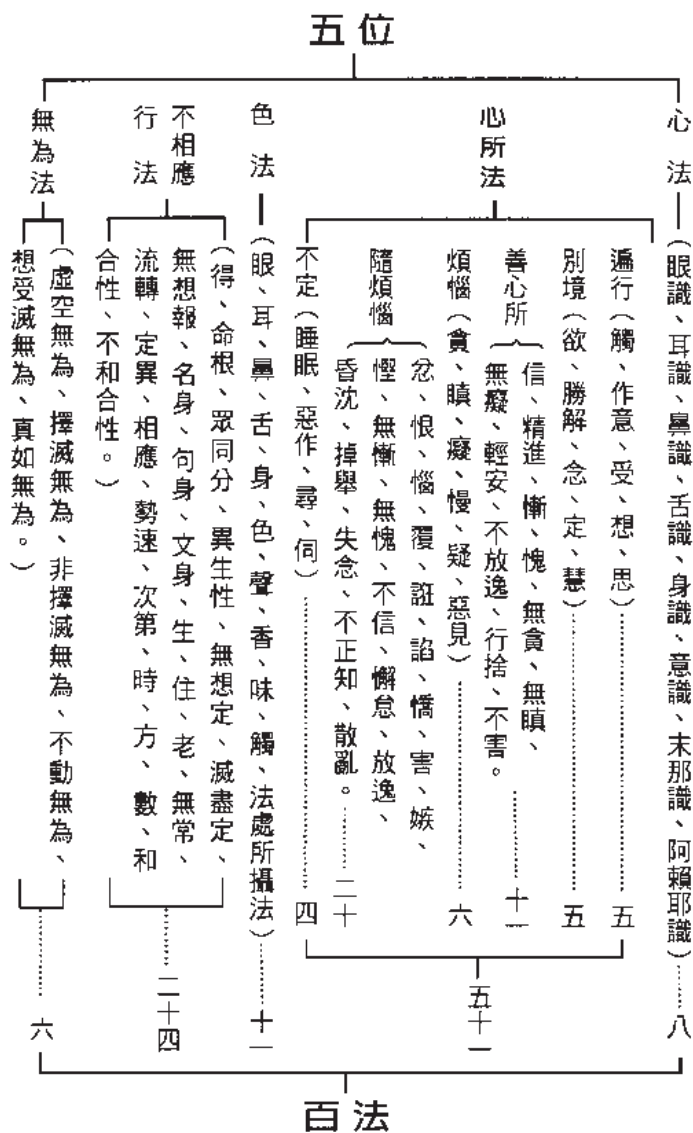 五位
心法
(眼識、耳識、鼻識、舌識、身識、意識、末那識、阿賴耶識)
八
心所法
遍行(觸、作意、受、想、思)
五
別境(欲、勝解、念、定、慧)
五
善心所
信、精進、慚、愧、無貪、無瞋、
無癡、輕安、不放逸、行捨、不害。
十一
煩惱(貪、瞋、癡、慢、疑、惡見)
六
隨煩惱
忿、恨、惱、覆、誑、諂、憍、害、嫉、
慳、無慚、無愧、不信、懈怠、放逸、
昏沈、掉舉、失念、不正知、散亂。
二十
不定(睡眠、惡作、尋、伺)
四
五十一
色法
(眼、耳、鼻、舌、身、色、聲、香、味、觸、法處所攝法)
十一
不相應
行法
(得、命根、眾同分、異生性、無想定、滅盡定、
無想報、名身、句身、文身、生、住、老、無常、
流轉、定異、相應、勢速、次第、時、方、數、和
合性、不和合性。)
二十四
無為法
(虛空無為、擇滅無為、非擇滅無為、不動無為、
想受滅無為、真如無為。)
六
百法